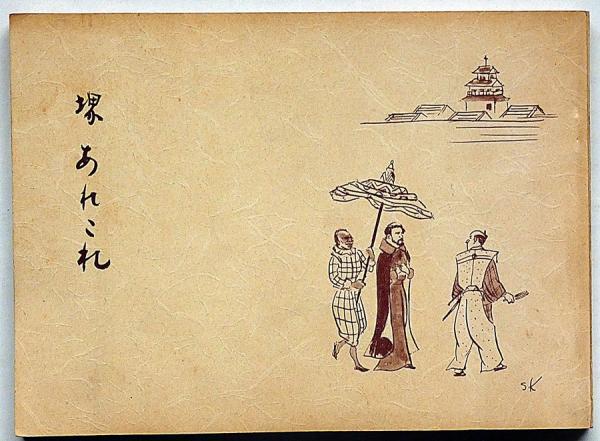 堺 あれこれ
SK